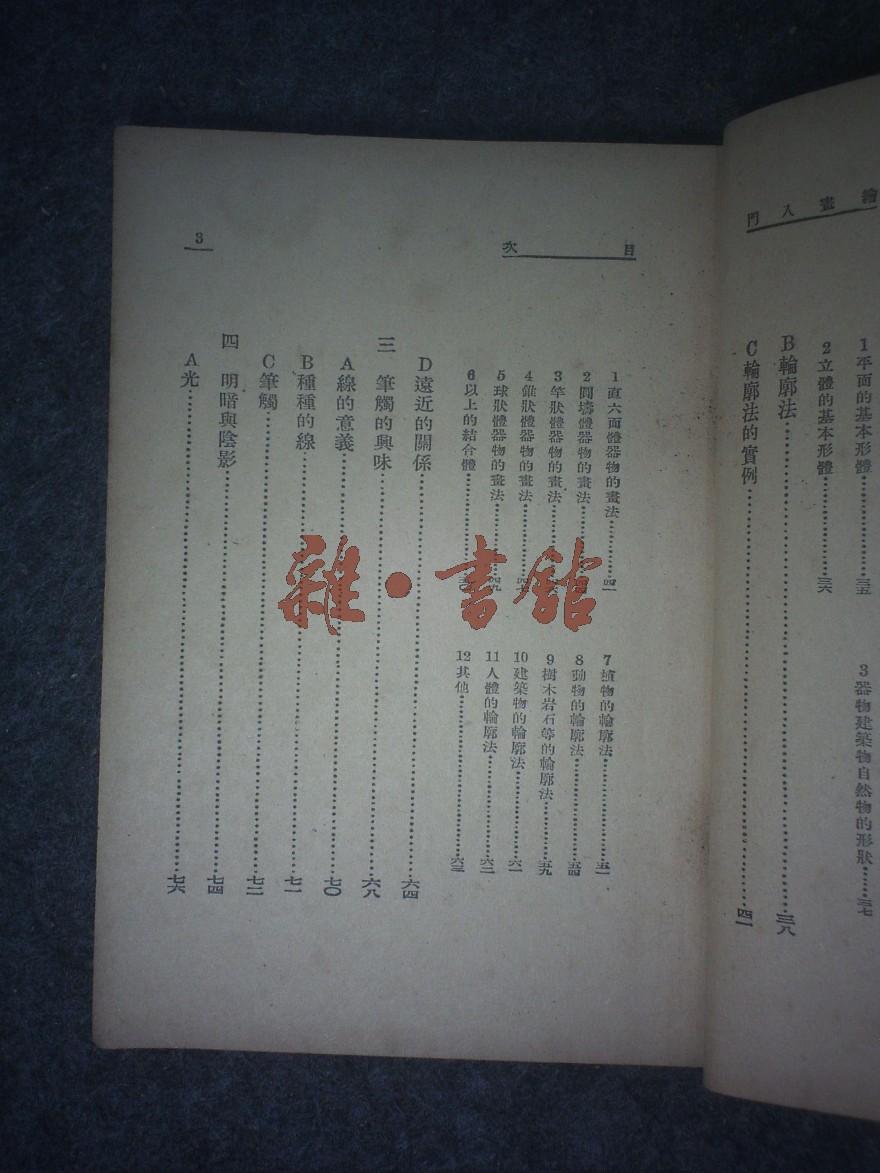 繪畫入門
1平面的基本形體……三五
2立體的基本形體……三六
3器物建築物自然物的形狀……三七
B輪廓法……三八
C輪廓法的實例……四一
目次
3
1直六面體器物的畫法……四一
2圓壔體器物的畫法
3竿狀體器物的畫法
4錐狀體器物的畫法……四七
5球狀體器物的畫法……四九
6以上的結合體……五〇
7植物的輪廓法……五一
8動物的輪廓法……五四
9樹木岩石等的輪廓法……五九
10建築物的輪廓法……六一
11人體的輪廓法……六二
12其他……六三
D遠近的關係……六四
三 筆觸的興味……六八
A線的意義……七〇
B種種的線……七一
C筆觸……七二
四 明暗與陰影……七四
A光……七六
雜·書館